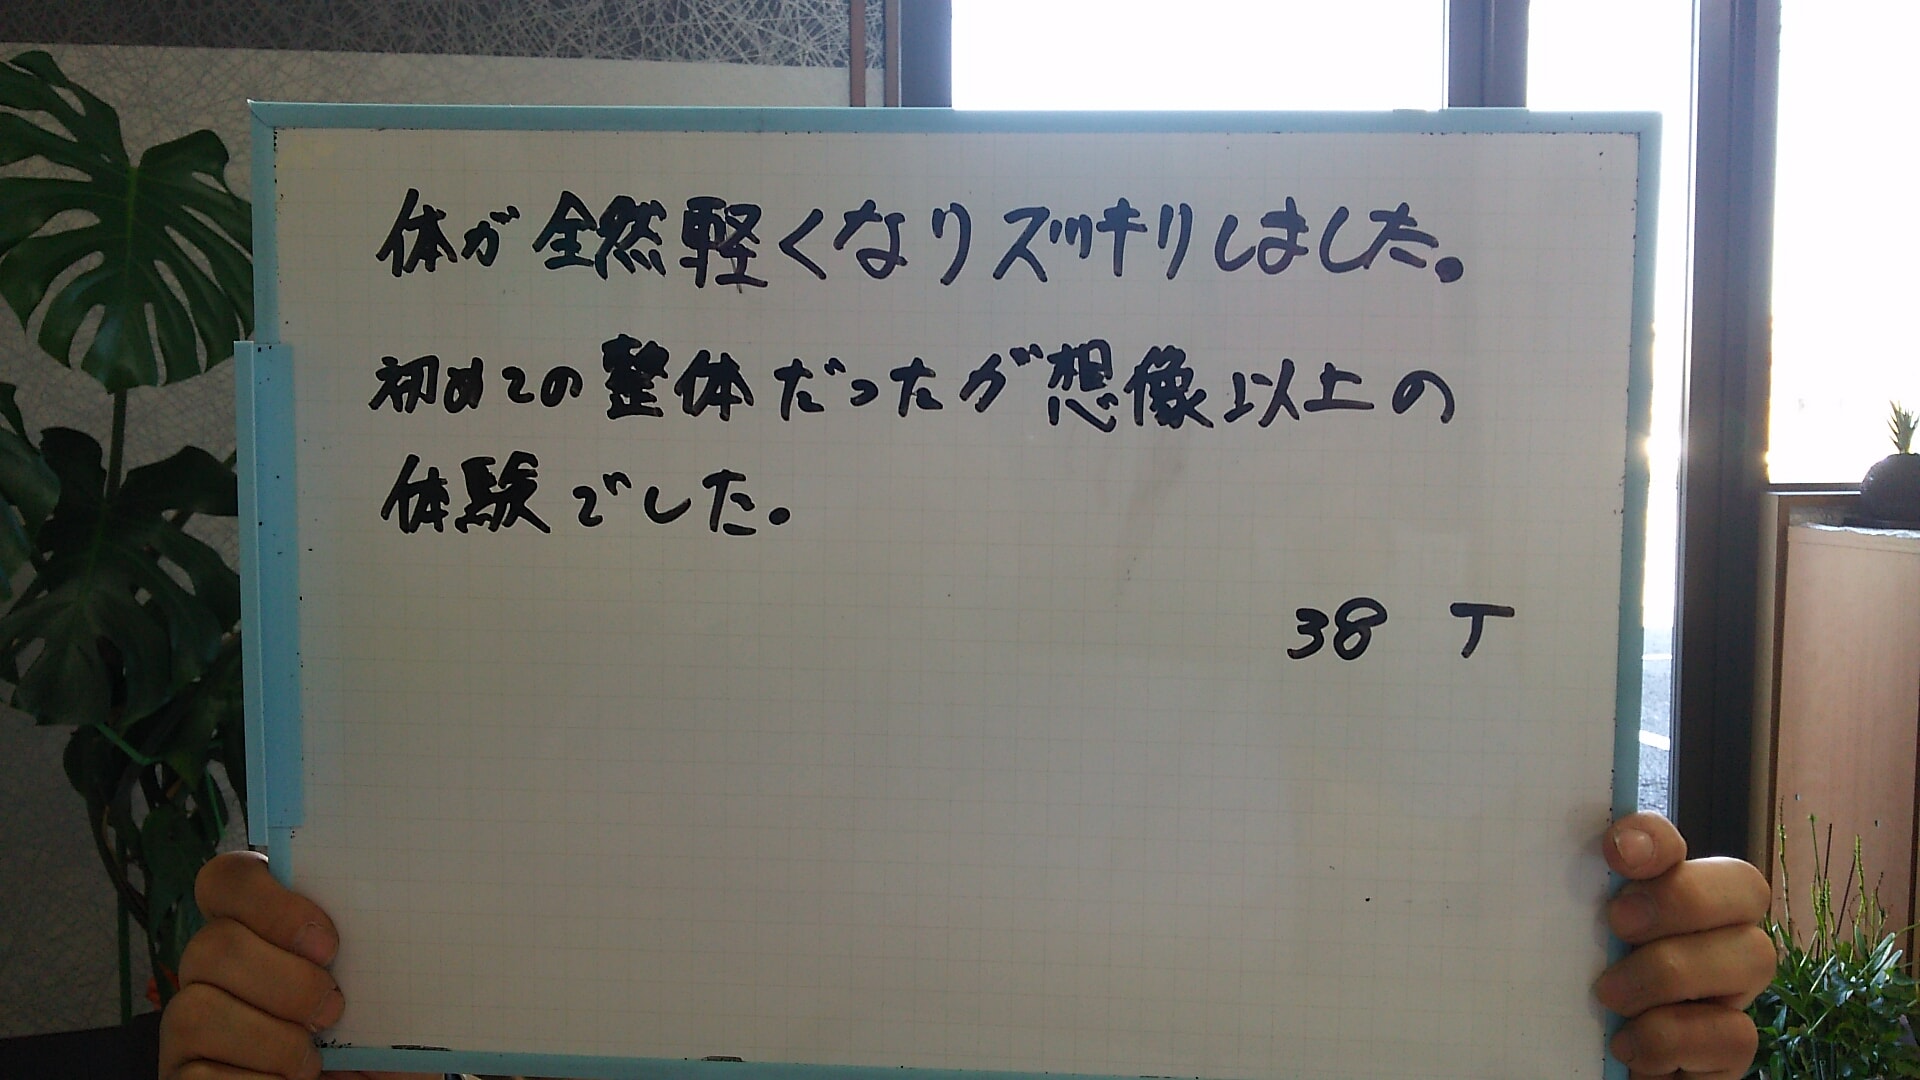 体が全然軽くなりスッキリしました。
初めての整体だったが想像以上の
体験でした。
38 T